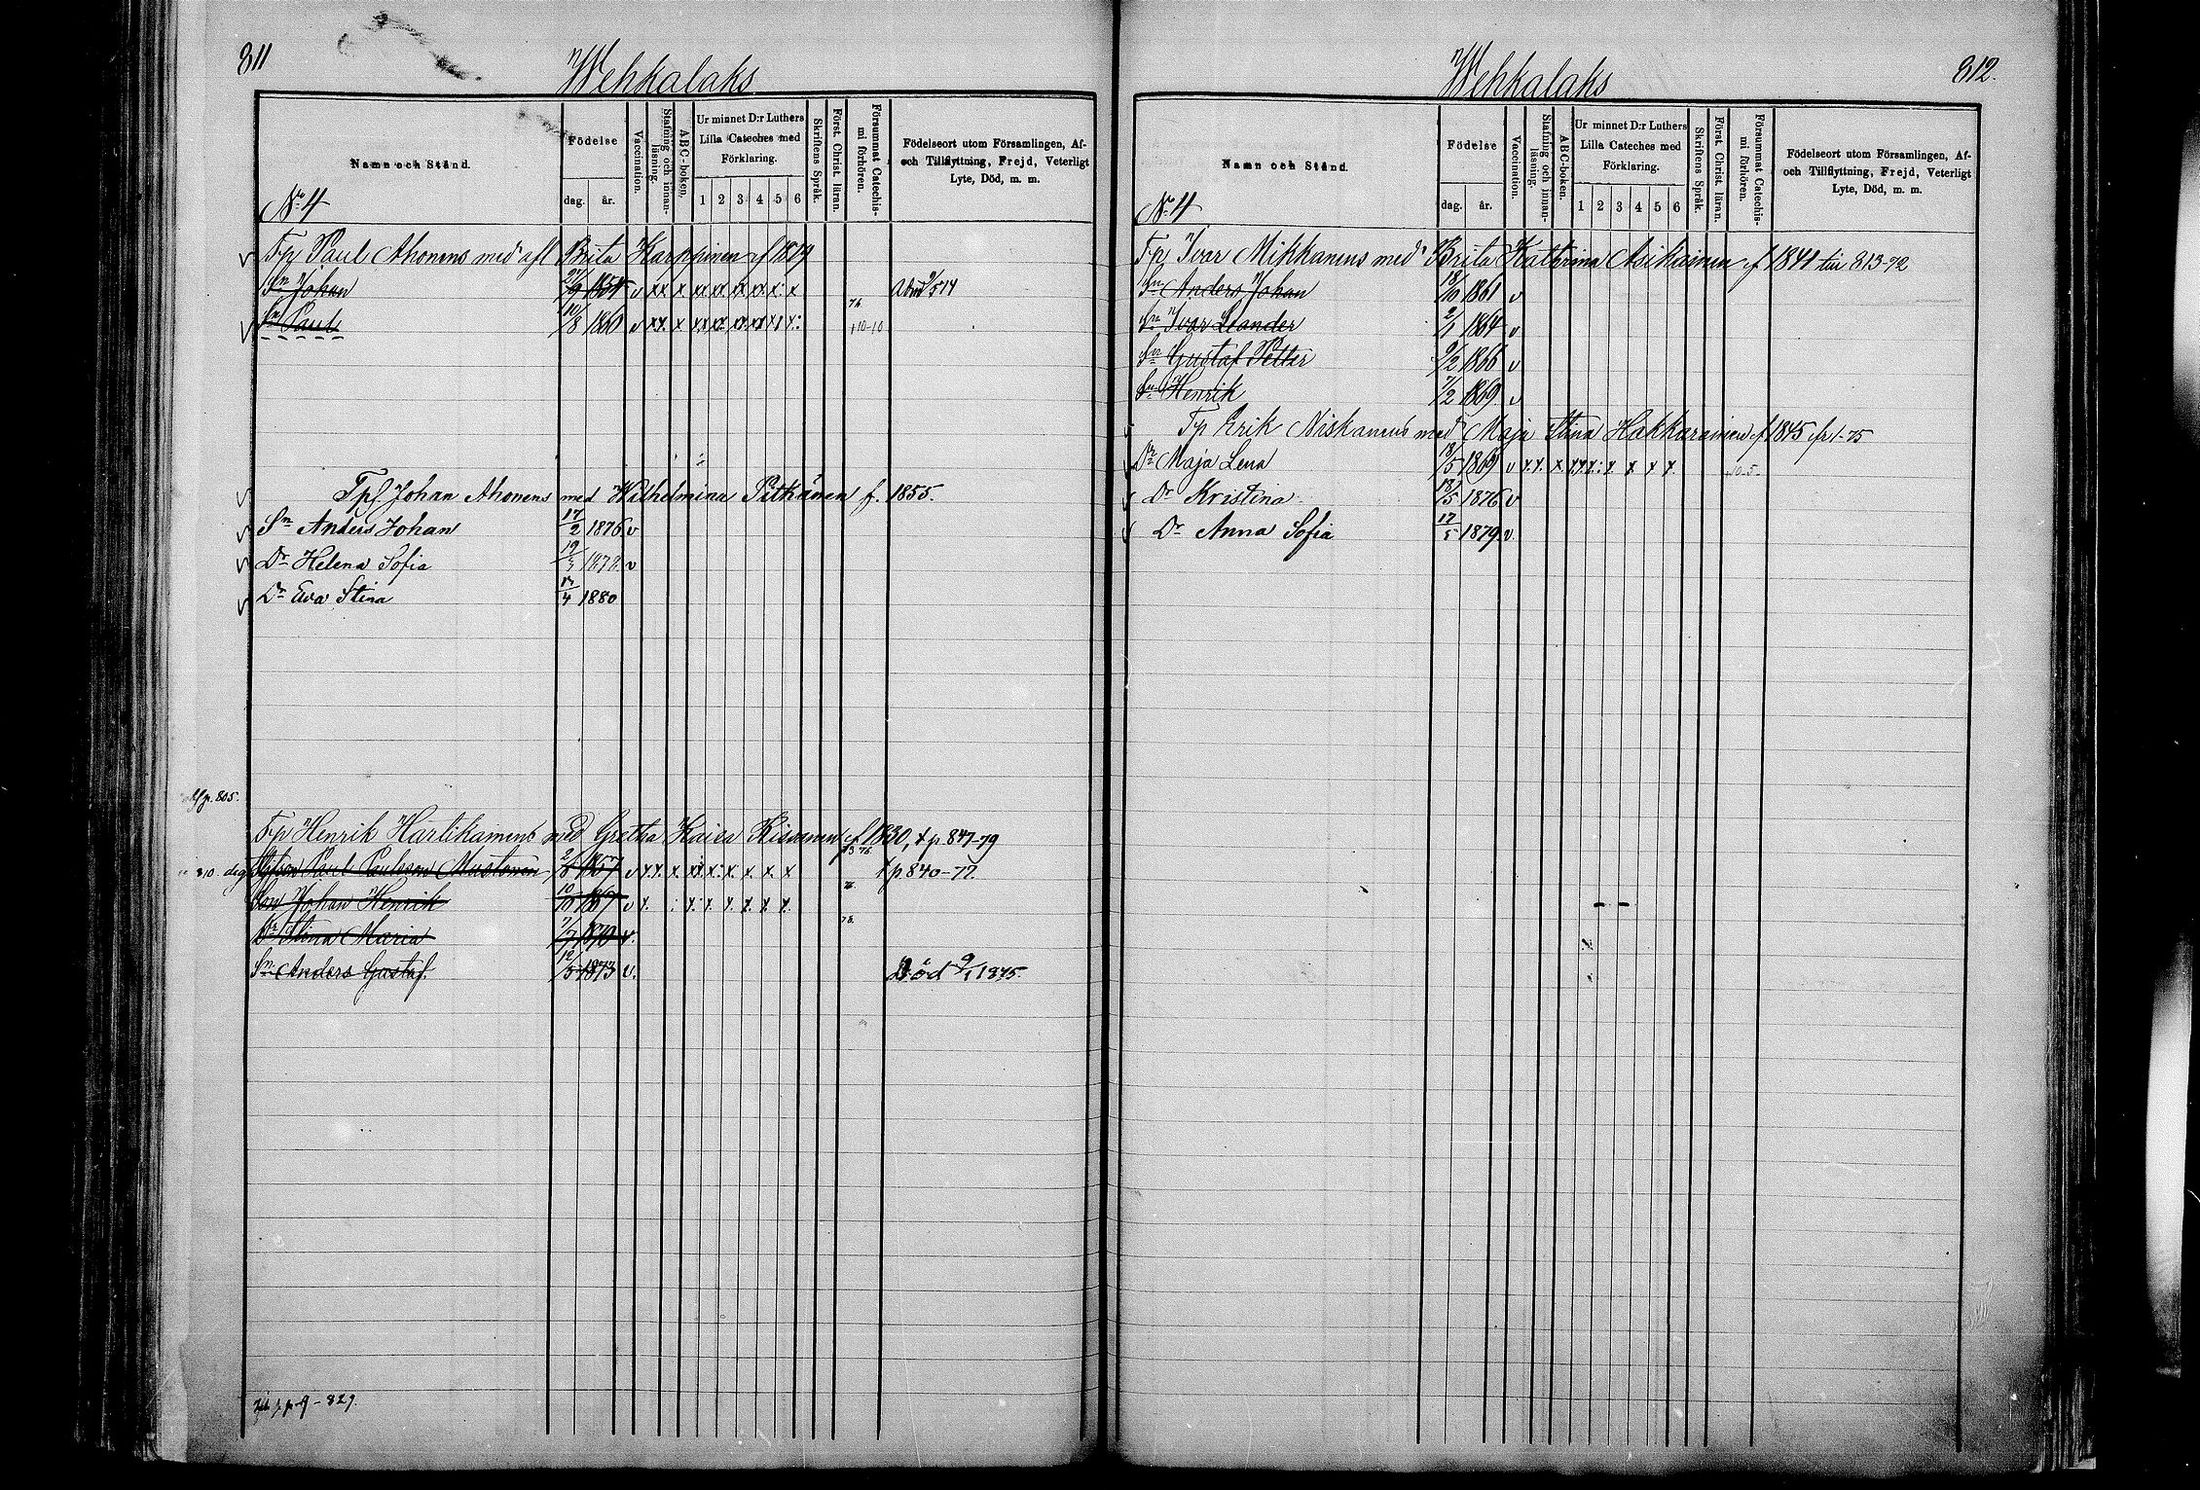 811
Wehkalaks
Namn och Stånd.
Födelse
dag.
år.
Vaccination.
Stafning och innan-läsning.
ABC-boken.
Ur minnet D:r Luthers
Lilla Cateches med
Förklaring.
1 2 3 4 5 6
Skriftens Språk.
Först. Christ. läran.
Försummat Catechis-mi förhören.
Födelseort utom Församlingen, Af-
och Tillflyttning, Frejd, Veterligt
Lyte, Död, m. m.
No 4
Tp Paul Ahonens med afl Brita Karppinen f 1819
Sn Johan 1854 v xx x xx xx x x x: x
Sn Paul 10/8 1860 v xx x
Tpf Johan Ahonens med Wilhelmina Pitkänen f. 1855.
Sn Anders Johan 17/2 1876 v
Dr Helena Sofia 1878. v
Dr Eva Stina 1880
p. 805.
Tp Henrik Hartikainens med Gretha Kaisa f 1830, + p 847-79
Paul Paulsson Mustonen 1857 v x x. x. + p 840-77.
Son Johan Henrik 1867 v x.
Dr Stina Maria 7/7 1870 v.
Sn Anders Gustaf. 12/5 1873 v. Död 9/1 1875.
829.
Wehkalaks
812.
Namn och Stånd.
Födelse
dag.
år.
Vaccination.
Stafning och innan-läsning.
ABC-boken.
Ur minnet D:r Luthers
Lilla Cateches med
Förklaring.
1 2 3 4 5 6
Skriftens Språk.
Först. Christ. läran.
Försummat Catechis-mi förhören.
Födelseort utom Församlingen, Af-
och Tillflyttning, Frejd, Veterligt
Lyte, Död, m. m.
No 4
Tp Ivar Mikkanens med Brita Kattrina Asikainen f 1841 till 813-72
Sn Anders Johan 18/10 1861 v
Sn Ivar Leander 2/1 1864 v
Sn Gustaf Petter 9/2 1866 v
Sn Henrik 7/2 1869 v
Tp Erik Niskanens med Maja Stina Hakkarainen f 1845 fr 1-75
Dr Maja Lena 13/5 1869 v x x. x xxx: x x x x. 10.5.
Dr Kristina 18/5 1876 v
Dr Anna Sofia 17/5 1879 v.